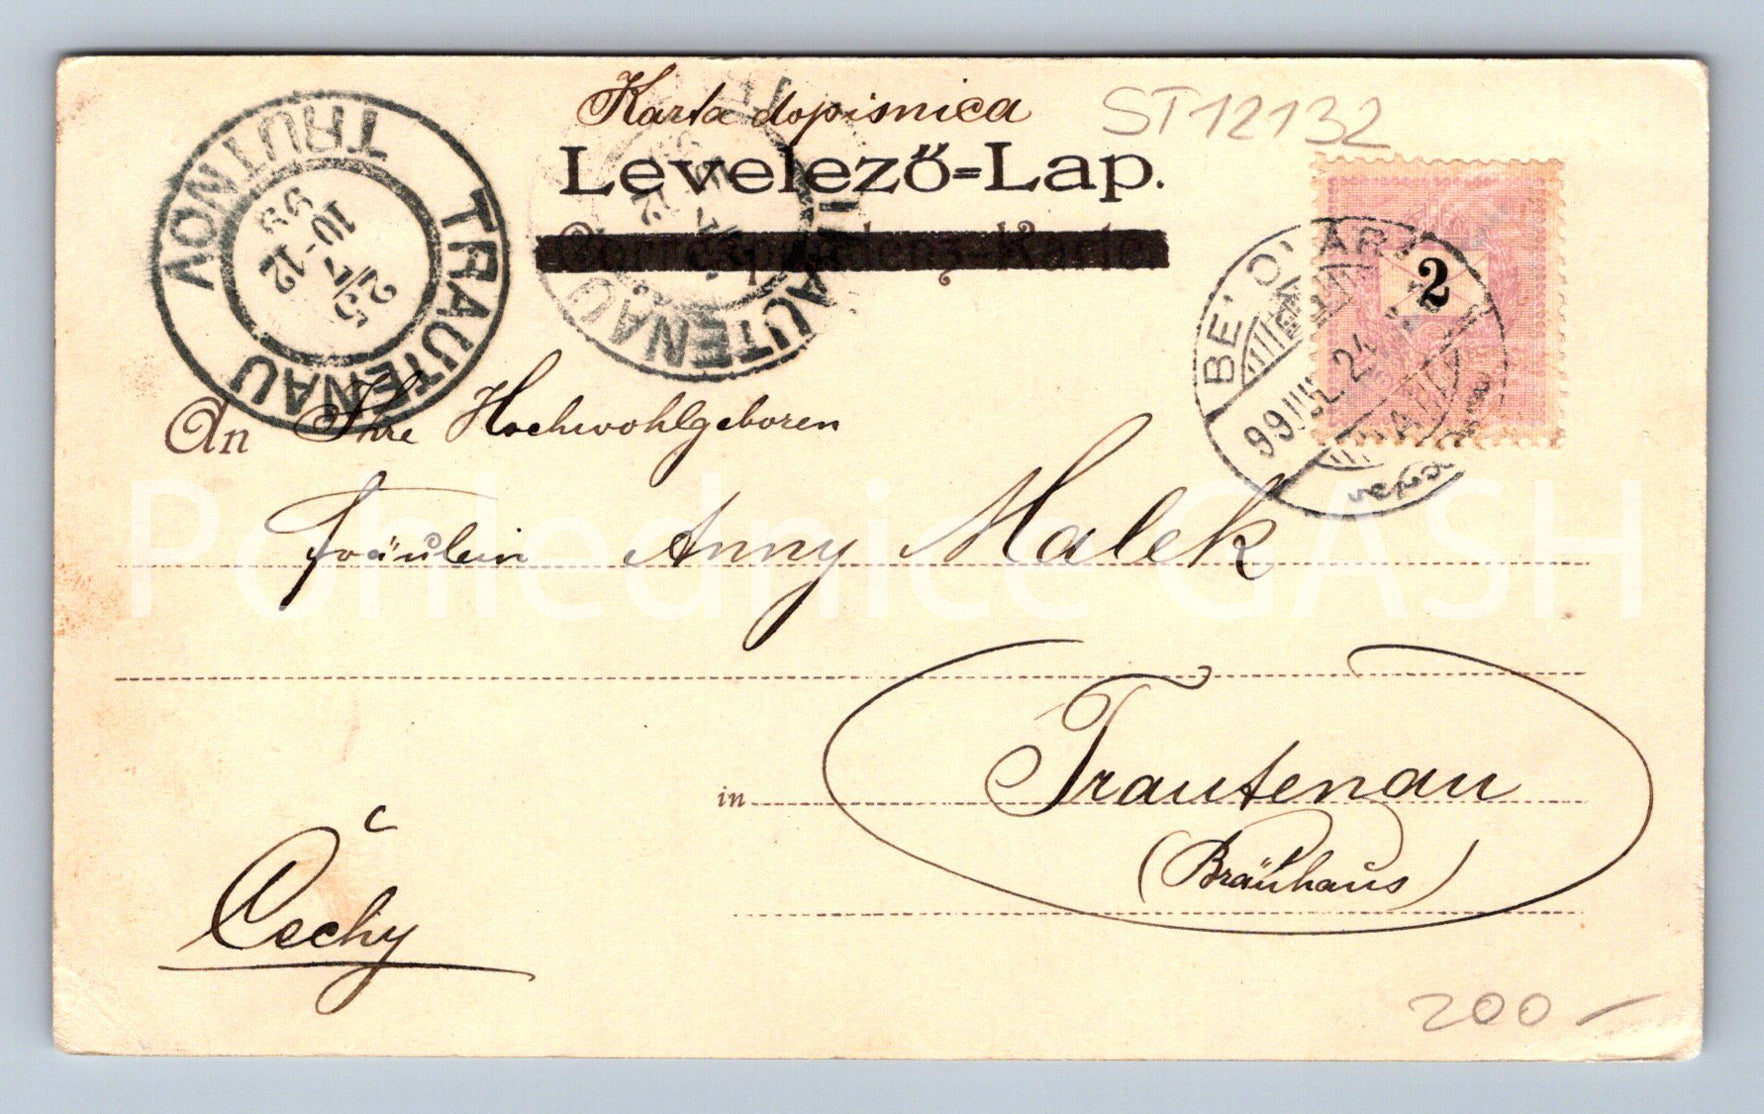 Karta dopisnica
ST12132
Levelező=Lap.
Correspondenz-Karte.
TRAUTENAU
TRUTNOV
25/7
10-12
99
TRAUTENAU
2
99 JUL. 24
An Ihre Hochwohlgeboren
Fräulein Anny Malek
Pohlednice GASH
in Trautenau
(Bräuhaus)
Čechy
200-